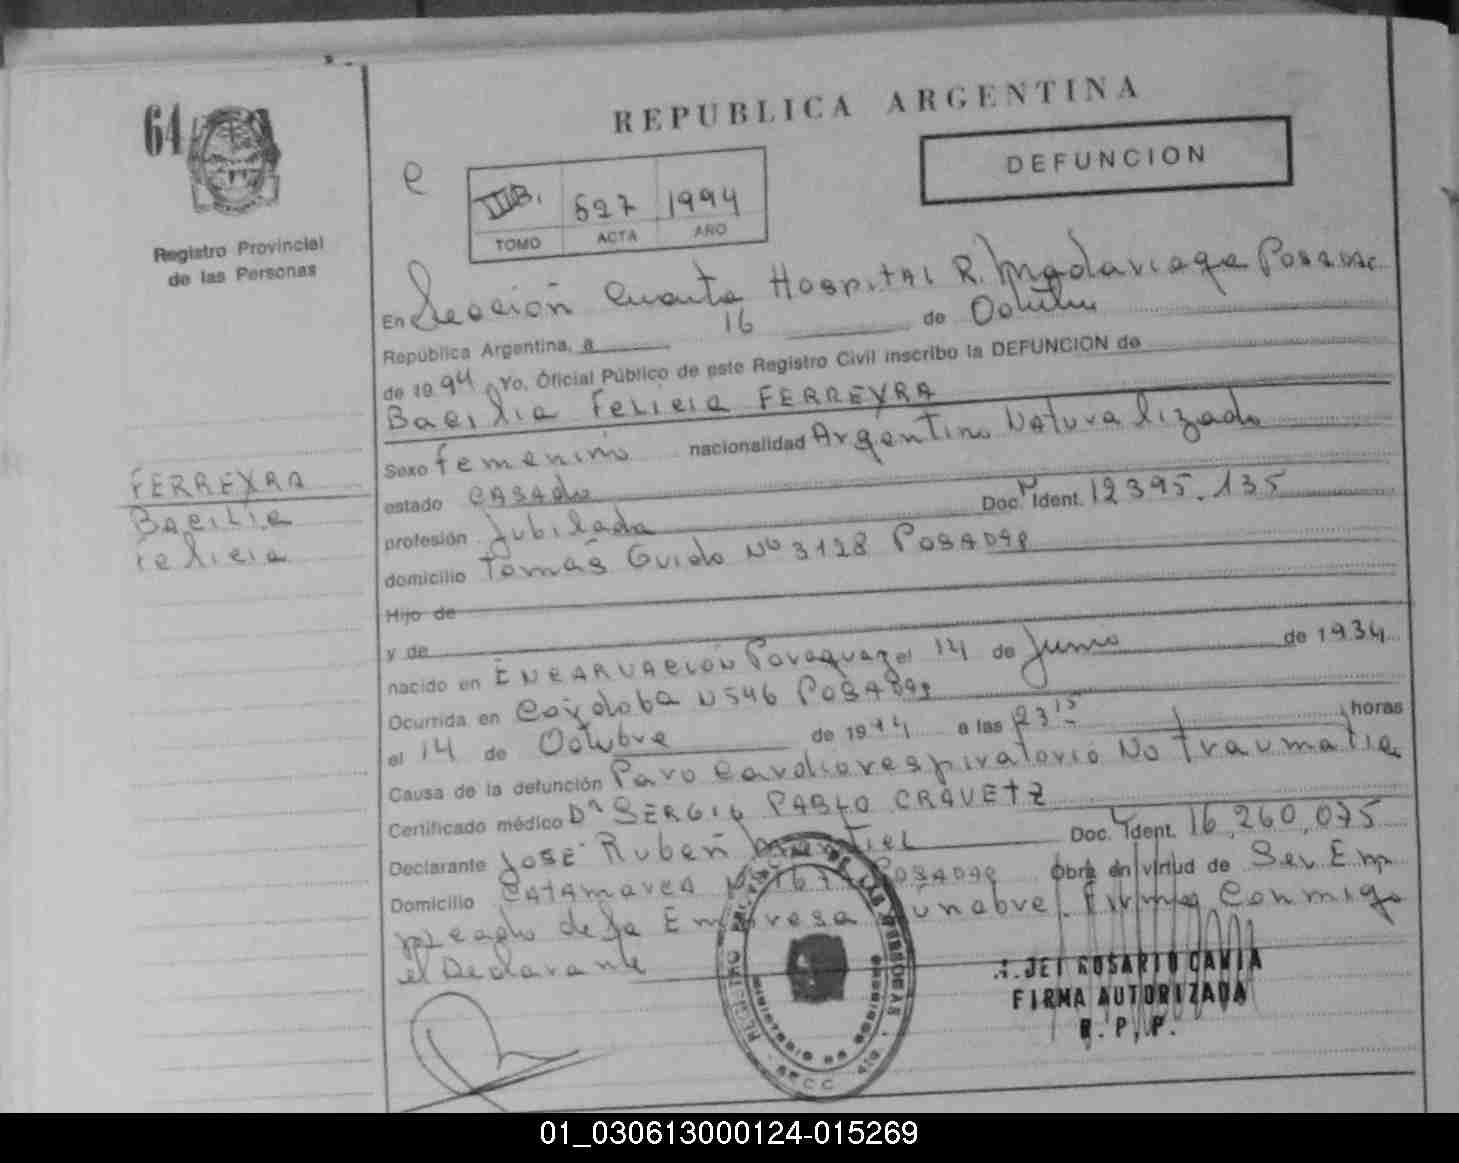 64
REPUBLICA ARGENTINA
DEFUNCION
e
IIB. 527 1994
TOMO ACTA AÑO
Registro Provincial
de las Personas
En Sección Cuarta Hospital R. Madariaga Posadas
República Argentina, a 16 de Octubre
de 1994 Yo, Oficial Público de este Registro Civil inscribo la DEFUNCION de
Bacilia Felicia FERREYRA
Sexo femenino nacionalidad Argentino Naturalizado
estado casado
profesión Jubilada Doc. Ident. 12395.135
domicilio Tomás Guido No 3128 Posadas
Hijo de
y de
nacido en Encarnación Paraguay el 14 de Junio de 1934
Ocurrida en Córdoba N 546 Posadas
el 14 de Octubre de 1994 a las 23 15 horas
Causa de la defunción Paro Cardiorespiratorio No Traumatic
Certificado médico Dr SERGIO PABLO CRAVETZ
Declarante José Rubén Doc. Ident. 16.260.075
Domicilio Catamarca Posadas obra en virtud de Ser Em
pleado de la Empresa Funabre. Firma Conmigo
el Declarante
FERREYRA
Bacilia
Felicia
ROSARIO CAVIA
FIRMA AUTORIZADA
R. P. P.
REGISTRO PROVINCIAL DE LAS PERSONAS
MINISTERIO DE GOBIERNO
01_030613000124-015269